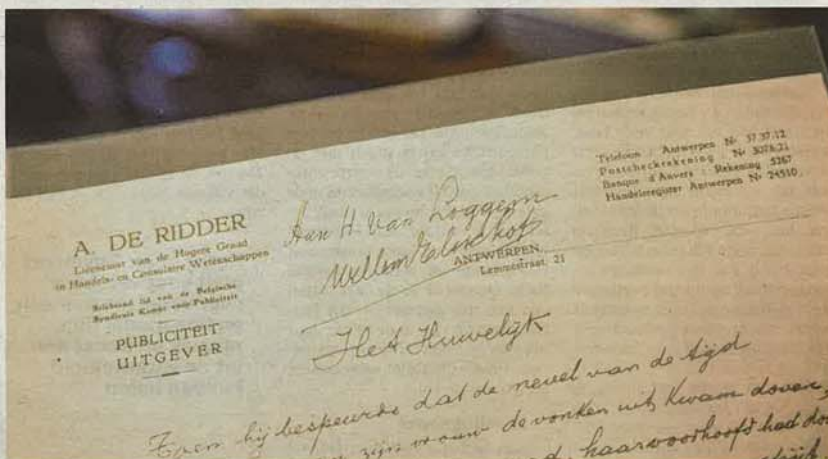 A. DE RIDDER
Licenciaat van de Hogere Graad
in Handels- en Consulaire Wetenschappen
Stichtend lid van de Belgische
Syndicale Kamer voor Publiciteit
PUBLICITEIT
UITGEVER
Aan H. Van Loggem
Willem Elsschot
Telefoon : Antwerpen Nr 37.37.12
Postcheckrekening Nr 3076.21
Banque d'Anvers : Rekening 5267
Handelsregister Antwerpen Nr 24510
ANTWERPEN,
Lemméstraat, 21
Het Huwelijk
Toen hij bespeurde dat de nevel van de tijd
zijn vrouw de vonken uit kwam doven,
haar voorhoofd had